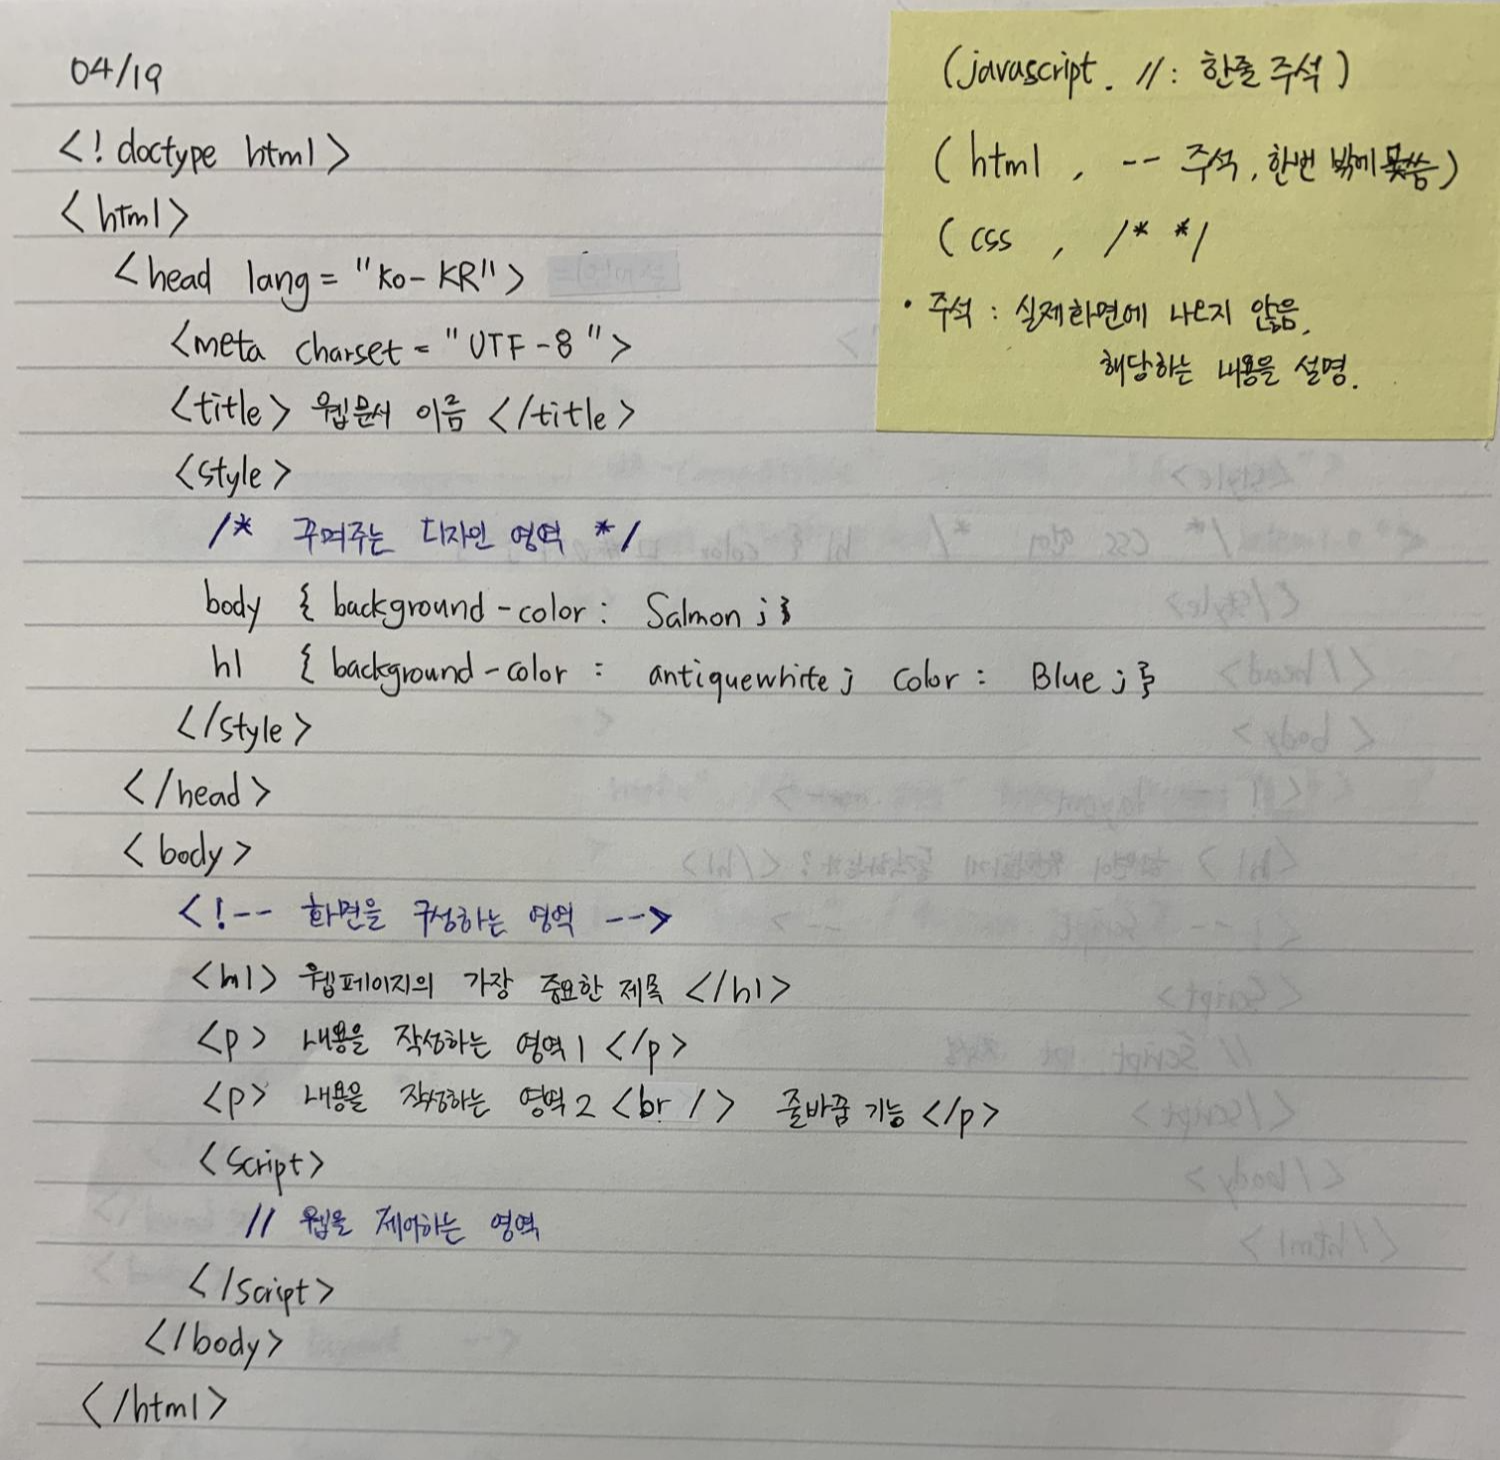 04/19
<! doctype html>
<html>
<head lang = "ko-KR">
<meta charset = "UTF-8">
<title> 웹문서 이름 </title>
<style>
/* 꾸며주는 디자인 영역 */
body { background-color : Salmon ; }
h1 { background-color : antiquewhite ; color : Blue ; }
</style>
</head>
<body>
<!-- 화면을 구성하는 영역 -->
<h1> 웹페이지의 가장 중요한 제목 </h1>
<p> 내용을 작성하는 영역1 </p>
<p> 내용을 작성하는 영역2 <br /> 줄바꿈 기능 </p>
<script>
// 웹을 제어하는 영역
</script>
</body>
</html>
(javascript. // : 한줄 주석)
( html , -- 주석, 한번 밖에 못씀)
( css , /* */
• 주석 : 실제화면에 나오지 않음,
해당하는 내용을 설명.